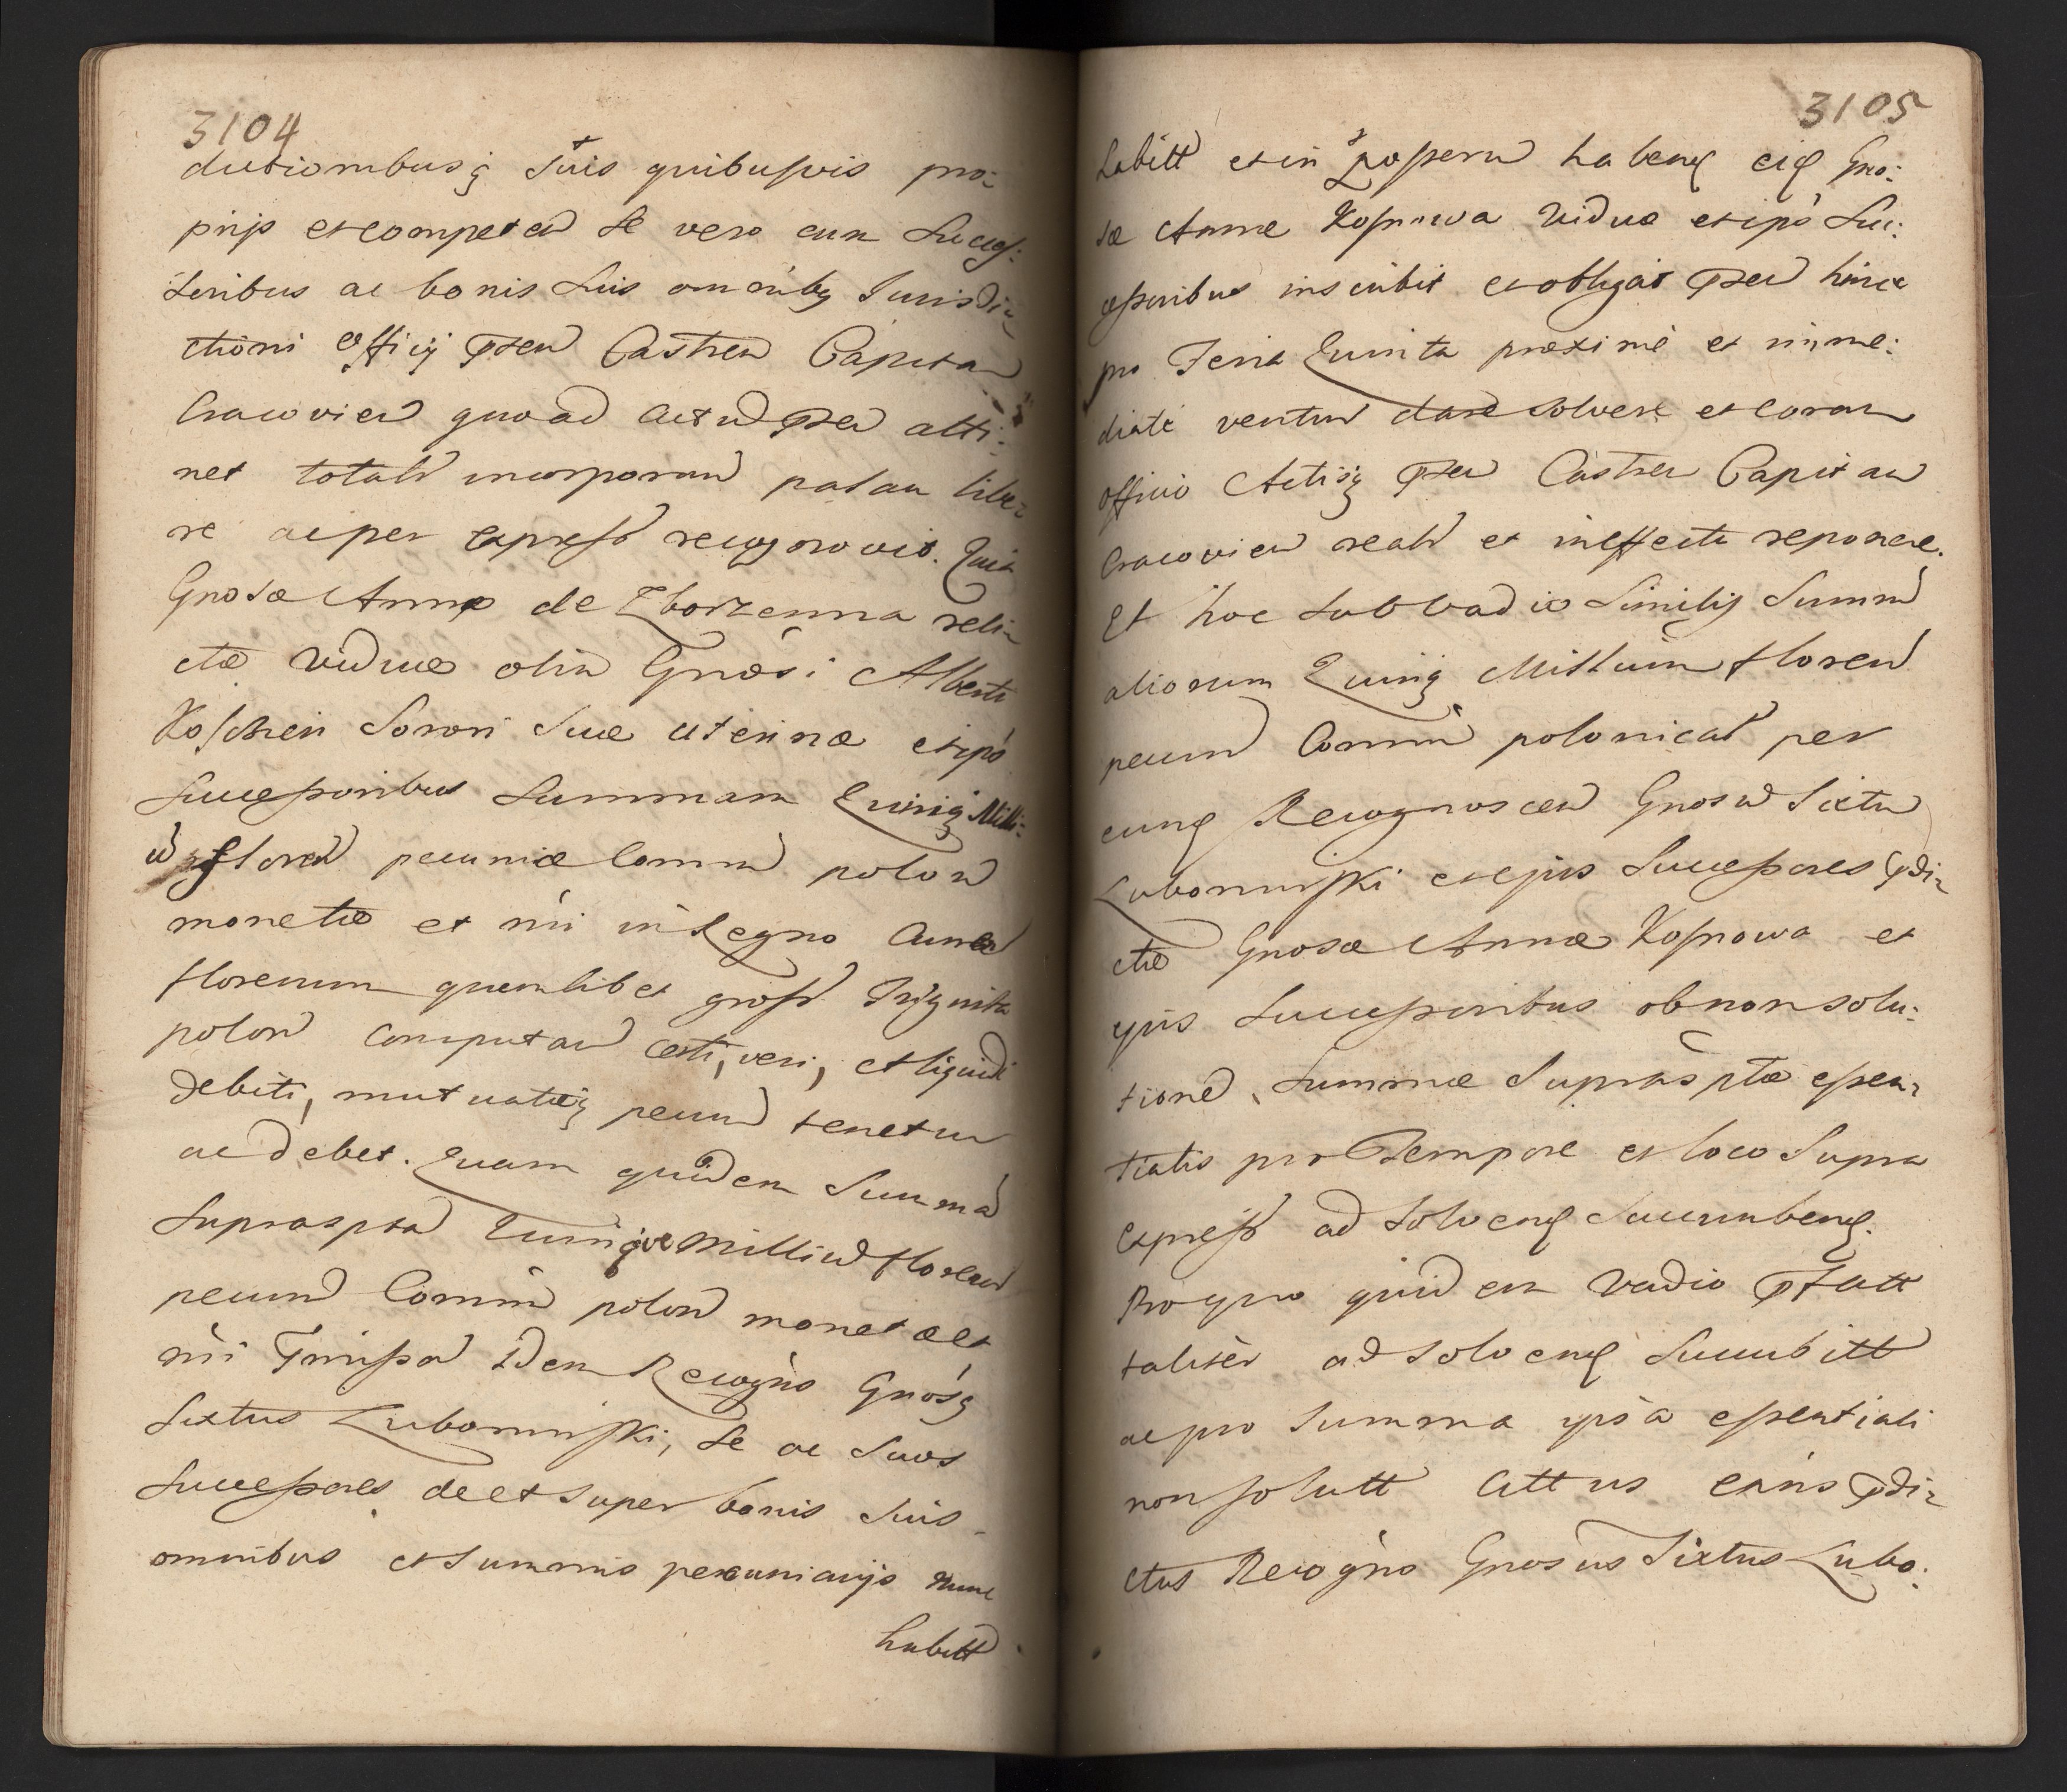 3104
ductionibusq Suis quibusvis pro:
prijs et competen Se vero cum Succes:
soribus ac bonis Suis omnibq Jurisdi
ctioni Officij pren Castren Capitan
Cracovien quoad Actum pren atti:
net totalr incorporan palam libe
re ac per expressr recognovit. Quia
Gnosæ Annæ de Zborzenna reli
ctæ viduæ olim Gnosi Alberti
Sorori Suæ uterinæ et ips
Successoribus Summam Quinq Milli:
u floren pecuniæ Comm polon
monetæ et nri in Regno Curren
florenum quemlibet gross Triginta
polon Computan certi, veri, et liquidi
debiti, mutuatæq pecun tenetur
ac debet. Quam quidem Summa
Suprasptam Quinque Milliu floren
pecun Comm polon monetæ et
nri Idem Recogns Gnosq
Sixtus Lubomirski, Se ac Suos
Successores de et Super bonis Suis
omnibus et Summis pecuniarijs nunc
habitt
3105
habitt et in posteru habenq eiq Gno:
sæ Annæ Kosnowa Viduæ et ips Suc:
cessoribus inscribit et obligat pren hinc
pro Feria Quinta proxime et imme:
diate ventur dare Solvere et coram
Officio Actisq pren Castren Capitan
Cracovien realr et in effectu reponere.
Et hoc Sub vadio Similis Summ
aliorum Quinq Millium floren
pecun Comm polonical per
eunq Recognoscen Gnosum Sixtu
Lubomirski et ejus Successores pdi
ctæ Gnosæ Annæ Kosnowa et
ipis Successoribus ob non Solu:
tione Summæ Supraspta essen
tialis pro Tempore et loco Supra
express ad Solvenq Succumbenq.
Pro quo quidem Vadio pfatt
taliter ad Solvenq Succubitt
ac pro Summa ipsa essentiali
non Solutt Cittus pdi
ctus Recogns Gnosus Sixtus Lubo: